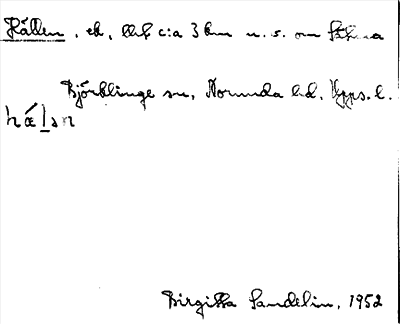 Hällen, ek, bl.f. c:a 3 km n.s. om Sätuna
Björklinge sn, Norunda hd, Upps. l.
hǽḷən
Birgitta Sandelin, 1952